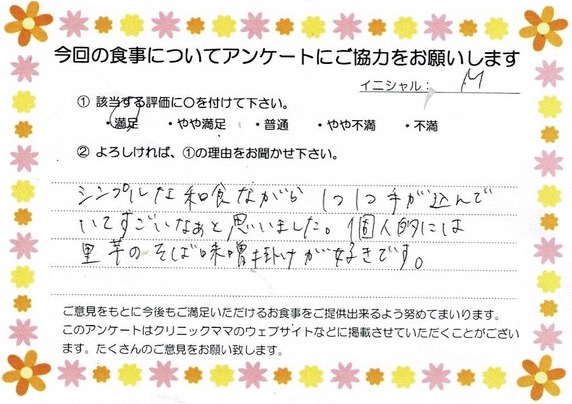 今回の食事についてアンケートにご協力をお願いします
イニシャル： M
① 該当する評価に〇を付けて下さい。
・満足 ・やや満足 ・普通 ・やや不満 ・不満
② よろしければ、①の理由をお聞かせ下さい。
シンプルな和食ながら 1つ1つ手が込んで
いてすごいなぁと思いました。個人的には
里芋のそば味噌掛けが好きです。
ご意見をもとに今後もご満足いただけるお食事をご提供出来るよう努めてまいります。
このアンケートはクリニックママのウェブサイトなどに掲載させていただくことがござい
ます。たくさんのご意見をお願い致します。